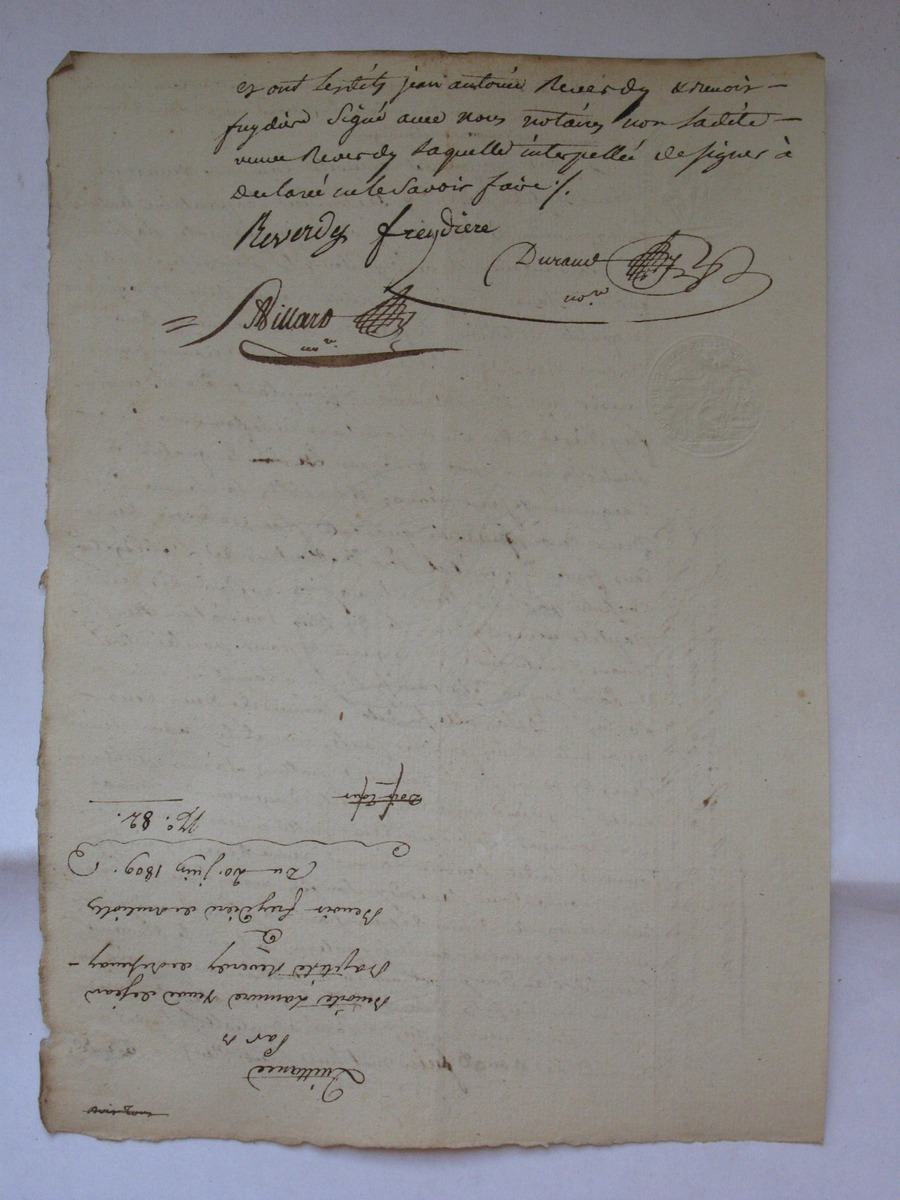 et ont lesdits jean antoine Reverdy & benoit
freydière Signé avec nous notaires non ladite
veuve Reverdy laquelle interpellée de signer à
declaré ne le Savoir faire ./.
Reverdy freydiere
Durand
no.re
Billard
no.re
Quittance
Par
Benoite Lamure veuve de jean
Baptiste Reverdy
à
Benoit freydière
Du 20. juin 1809.
N.º 82.